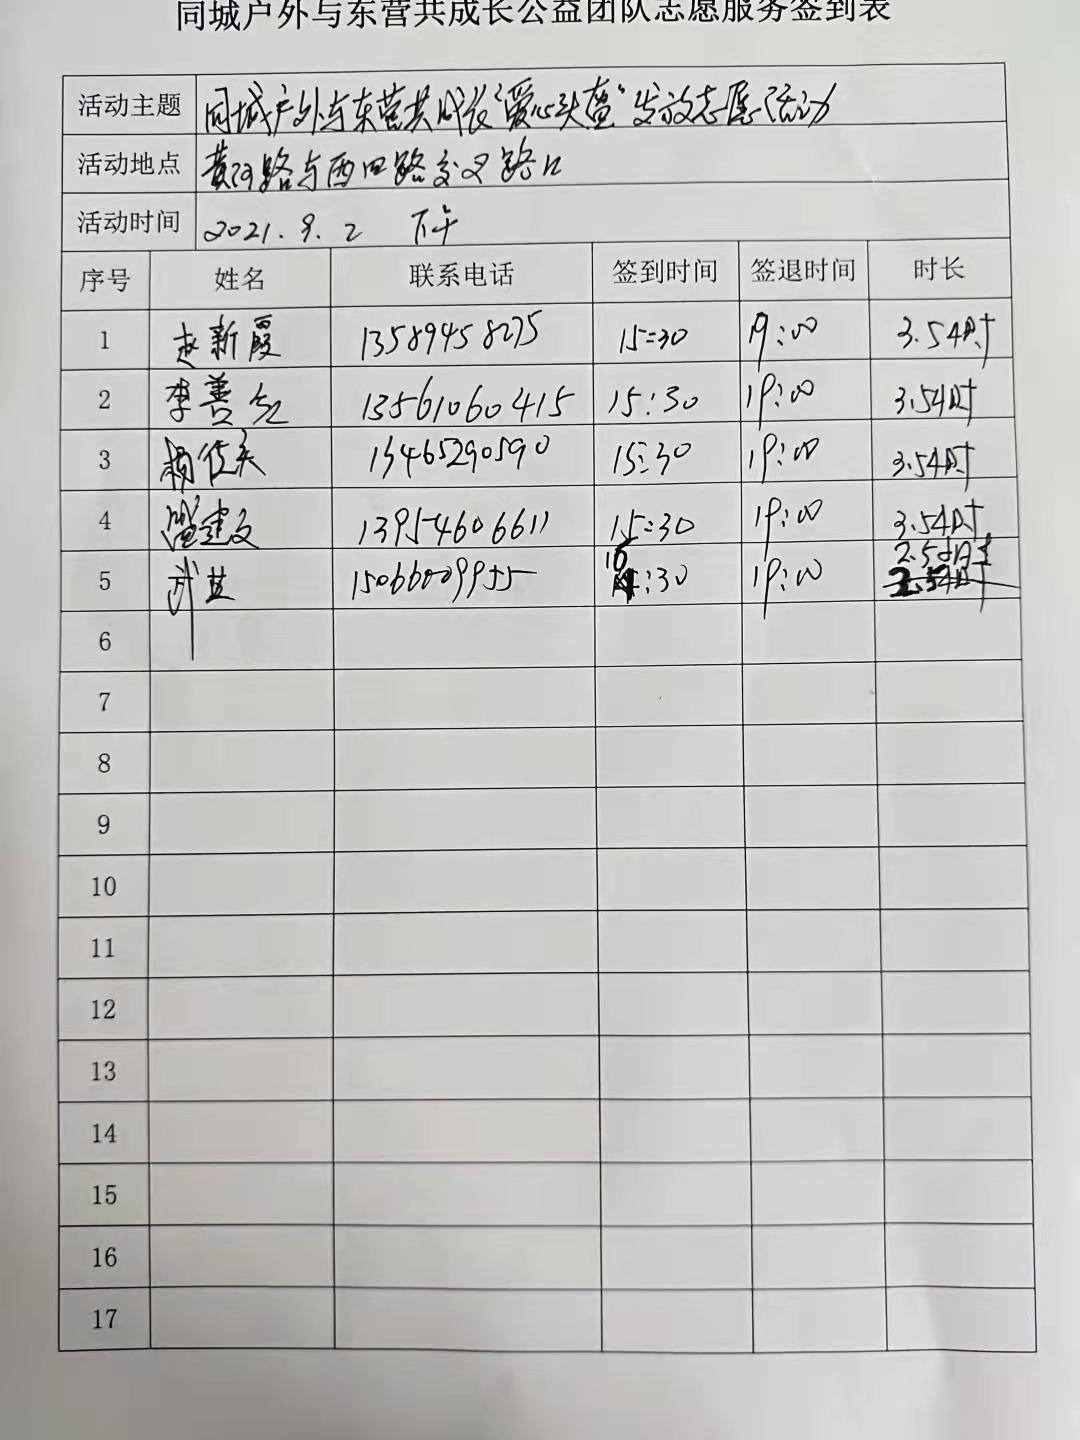 同城户外与东营共成长公益团队志愿服务签到表
活动主题 同城户外与东营共成长"爱心头盔"发放志愿活动
活动地点 黄河路与西四路交叉路口
活动时间 2021.9.2 下午
序号 姓名 联系电话 签到时间 签退时间 时长
1 赵新霞 13589458275 15:30 19:00 3.5小时
2 李善 13561060415 15:30 19:00 3.5小时
3 杨 13465290590 15:30 19:00 3.5小时
4 建文 13954606611 15:30 19:00 3.5小时
5 武 15066009955 16:30 19:00 2.5小时
6
7
8
9
10
11
12
13
14
15
16
17